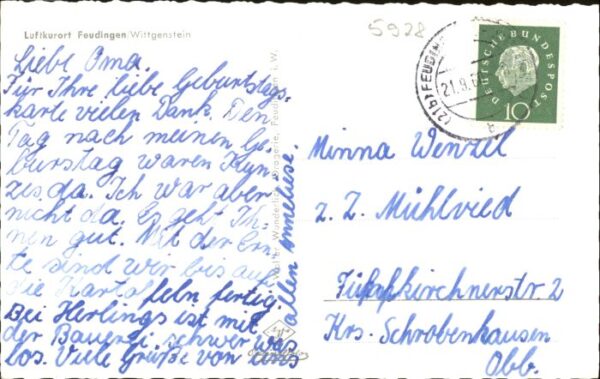 Luftkurort Feudingen/Wittgenstein
5928
Liebe Oma.
Für Ihre liebe Geburtstags-
karte vielen Dank. Den
Tag nach meinen Ge-
burstag waren Kun-
zes da. Ich war aber
nicht da. Es geht Ih-
nen gut. Mit der Ern-
te sind wir bis auf
die Kartoffeln fertig.
Bei Herlings ist mit
der Bauerei schwer was
los. Viele Grüße von uns
allen Anneliese.
Wunderlich, Drogerie, Feudingen i. W.
(21b) FEUDIN
21.9.6
DEUTSCHE BUNDESPOST
10
Minna Wenzel
z. Z. Mühlried
kirchnerstr 2
Krs. Schrobenhausen
Obb.